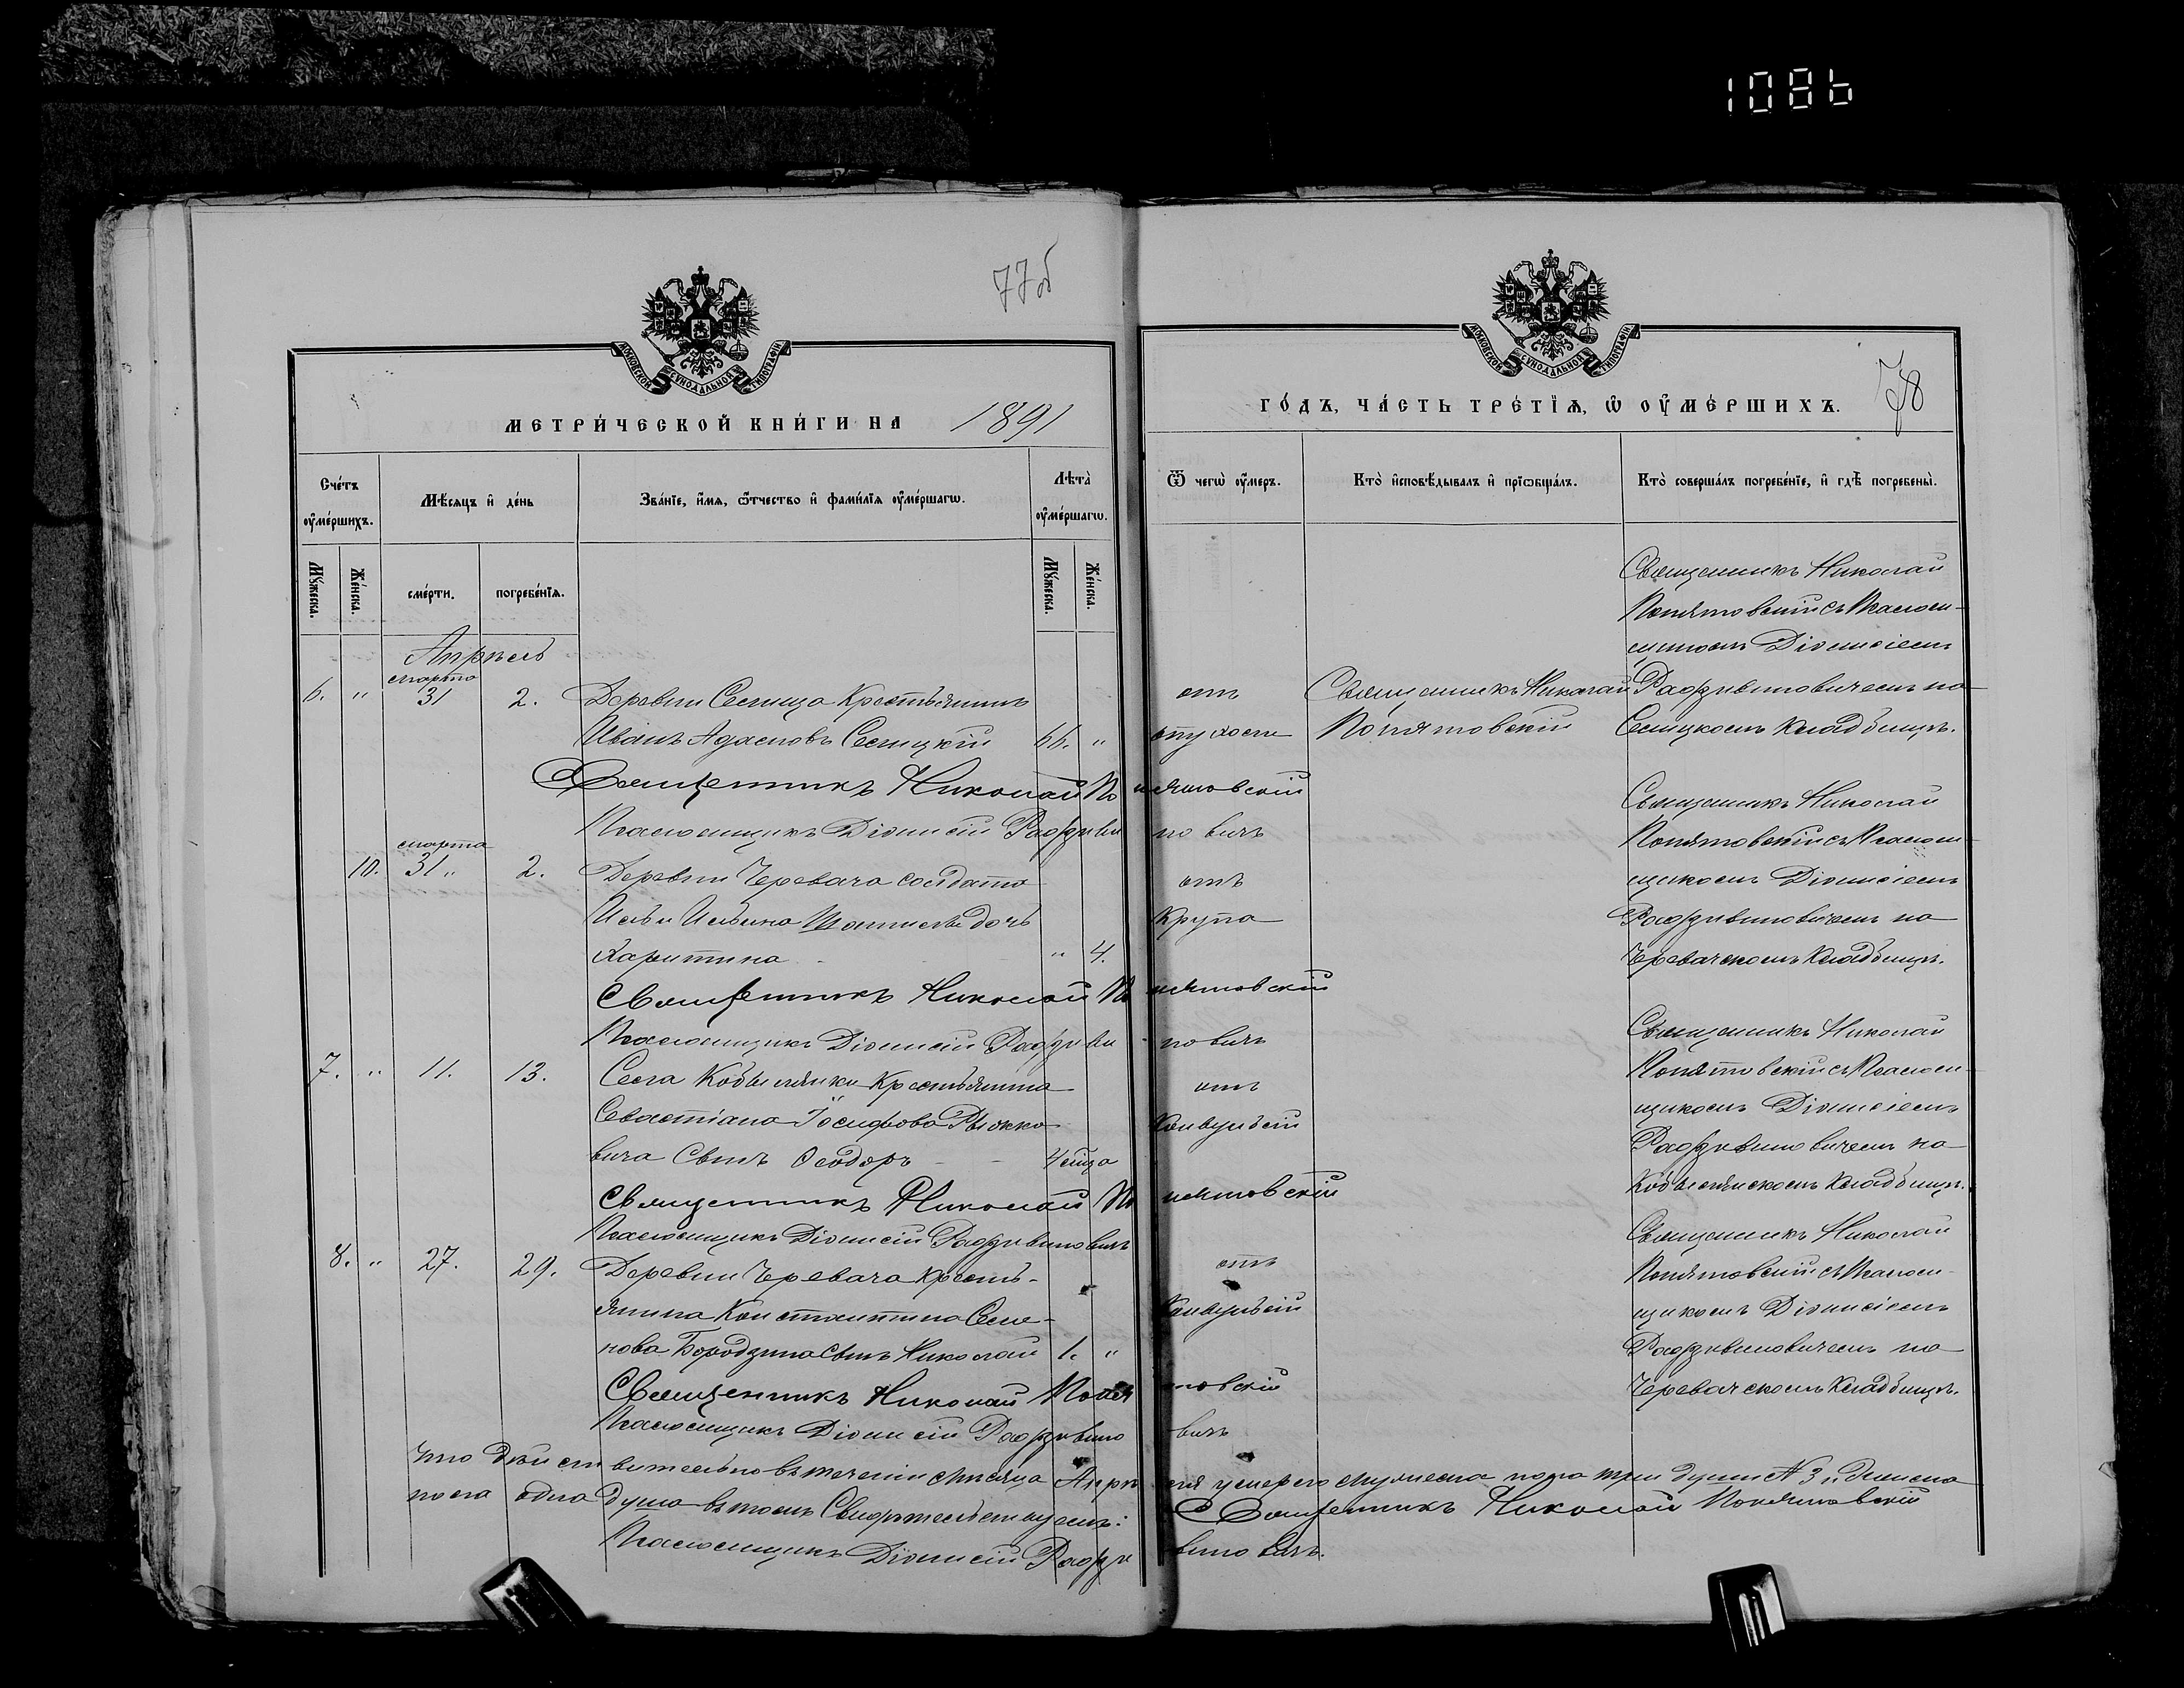 1086
77об
78
МОСКОВСКОЙ СУНОДАЛЬНОЙ ТИПОГРАФІИ
МОСКОВСКОЙ СУНОДАЛЬНОЙ ТИПОГРАФІИ
МЕТРИ́ЧЕСКОЙ КНИ́ГИ НА 1891
ГО́ДЪ, ЧА́СТЬ ТРЕ́ТІѦ, Ѡ ОУ҆МЕ́РШИХЪ.
Сче́тъ оу҆ме́ршихъ.
Мѣ́сѧцъ и҆ де́нь
Зва́нїе, и҆́мѧ, ѻ҆́тчество и҆ фами́лїѧ оу҆ме́ршагѡ.
Лѣ́та оу҆ме́ршагѡ.
Ѿ чегѡ̀ оу҆́меръ.
Кто̀ и҆сповѣ́дывалъ и҆ прїѡбща́лъ.
Кто̀ соверша́лъ погребе́нїе, и҆ гдѣ̀ погребены̀.
Му́жеска.
Же́нска.
сме́рти.
погребе́нїѧ.
Му́жеска.
Же́неска.
Апрѣль
марта
6. " 31 2. Деревни Семица Крестьянинъ
Иванъ Адамовъ Семицкій 66. "
отъ
опухоли
Священникъ Николай
Понятовскій
Священникъ Николай
Понятовскій съ Псалом-
щикомъ Діонисіемъ
Радзивиновичемъ на
Семицкомъ Кладбищѣ.
Священникъ Николай Понятовскій
Псаломщикъ Діонисій Радзивиновичъ
марта
10. 31 " 2. Деревни Черевача солдата
Ильи Ильина дочь
Харитина " 4.
отъ
Крупа
Священникъ Николай
Понятовскій съ Псалом-
щикомъ Діонисіемъ
Радзивиновичемъ на
Черевачскомъ Кладбищѣ.
Священникъ Николай Понятовскій
Псаломщикъ Діонисій Радзивиновичъ
7. " 11. 13. Села Кобылянки Крестьянина
Севастіана Іосифова Рыжко-
вича Сынъ Ѳеодоръ 4 м͠ца
отъ
Конвульсій
Священникъ Николай
Понятовскій съ Псалом-
щикомъ Діонисіемъ
Радзивиновичемъ на
Кобылянскомъ Кладбищѣ.
Священникъ Николай Понятовскій
Псаломщикъ Діонисій Радзивиновичъ
8. " 27. 29. Деревни Черевача Кресть-
янина Константина Семе-
нова Бородзина сынъ Николай 1. "
отъ
Конвульсій
Священникъ Николай
Понятовскій съ Псалом-
щикомъ Діонисіемъ
Радзивиновичемъ на
Черевачскомъ Кладбищѣ.
Священникъ Николай Понятовскій
Псаломщикъ Діонисій Радзивиновичъ
Что дѣйствительно въ теченіи мѣсяца Апрѣля умерло мужеска пола три души № 3 и женска
пола одна душа въ томъ Свидѣтельствуемъ: Священникъ Николай Понятовскій
Псаломщикъ Діонисій Радзивиновичъ.